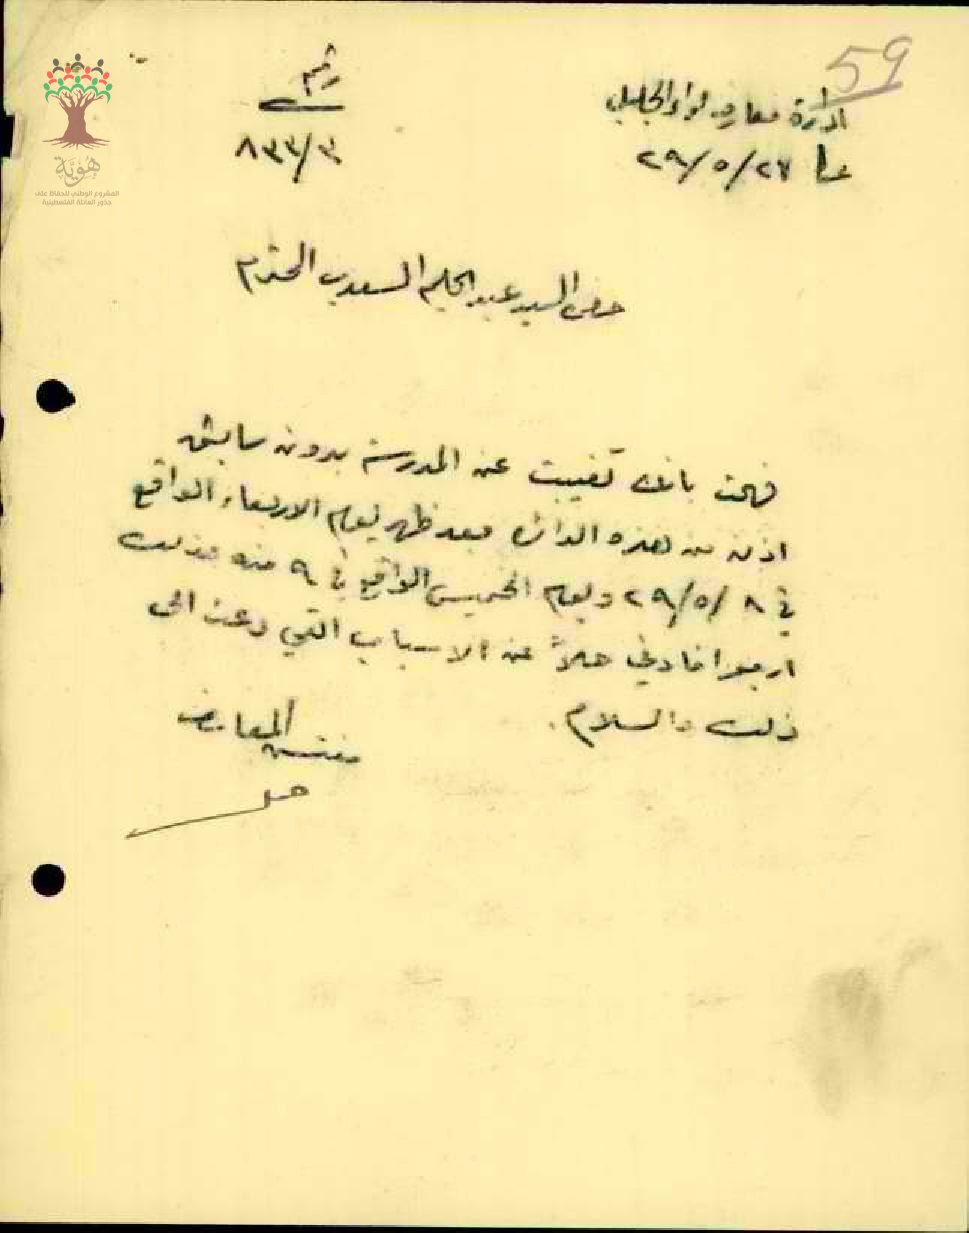 59
ادارة معارف لواء الجليل
عكا ٢٧/٥/٢٩
رقم
٨٣٣/٣
هوية
المشروع الوطني للحفاظ على
جذور العائلة الفلسطينية
حضرة السيد عبد الحليم السعدي المحترم
فهمت بانك تغيبت عن المدرسة بدون سابق
اذن من هذه الدائرة بعد ظهر يوم الاربعاء الواقع
في ٨/٥/٢٩ ويوم الخميس الواقع في ٩ منه لذلك
ارجو افادتي حالاً عن الاسباب التي دعت الى
ذلك والسلام.
مفتش المعارف